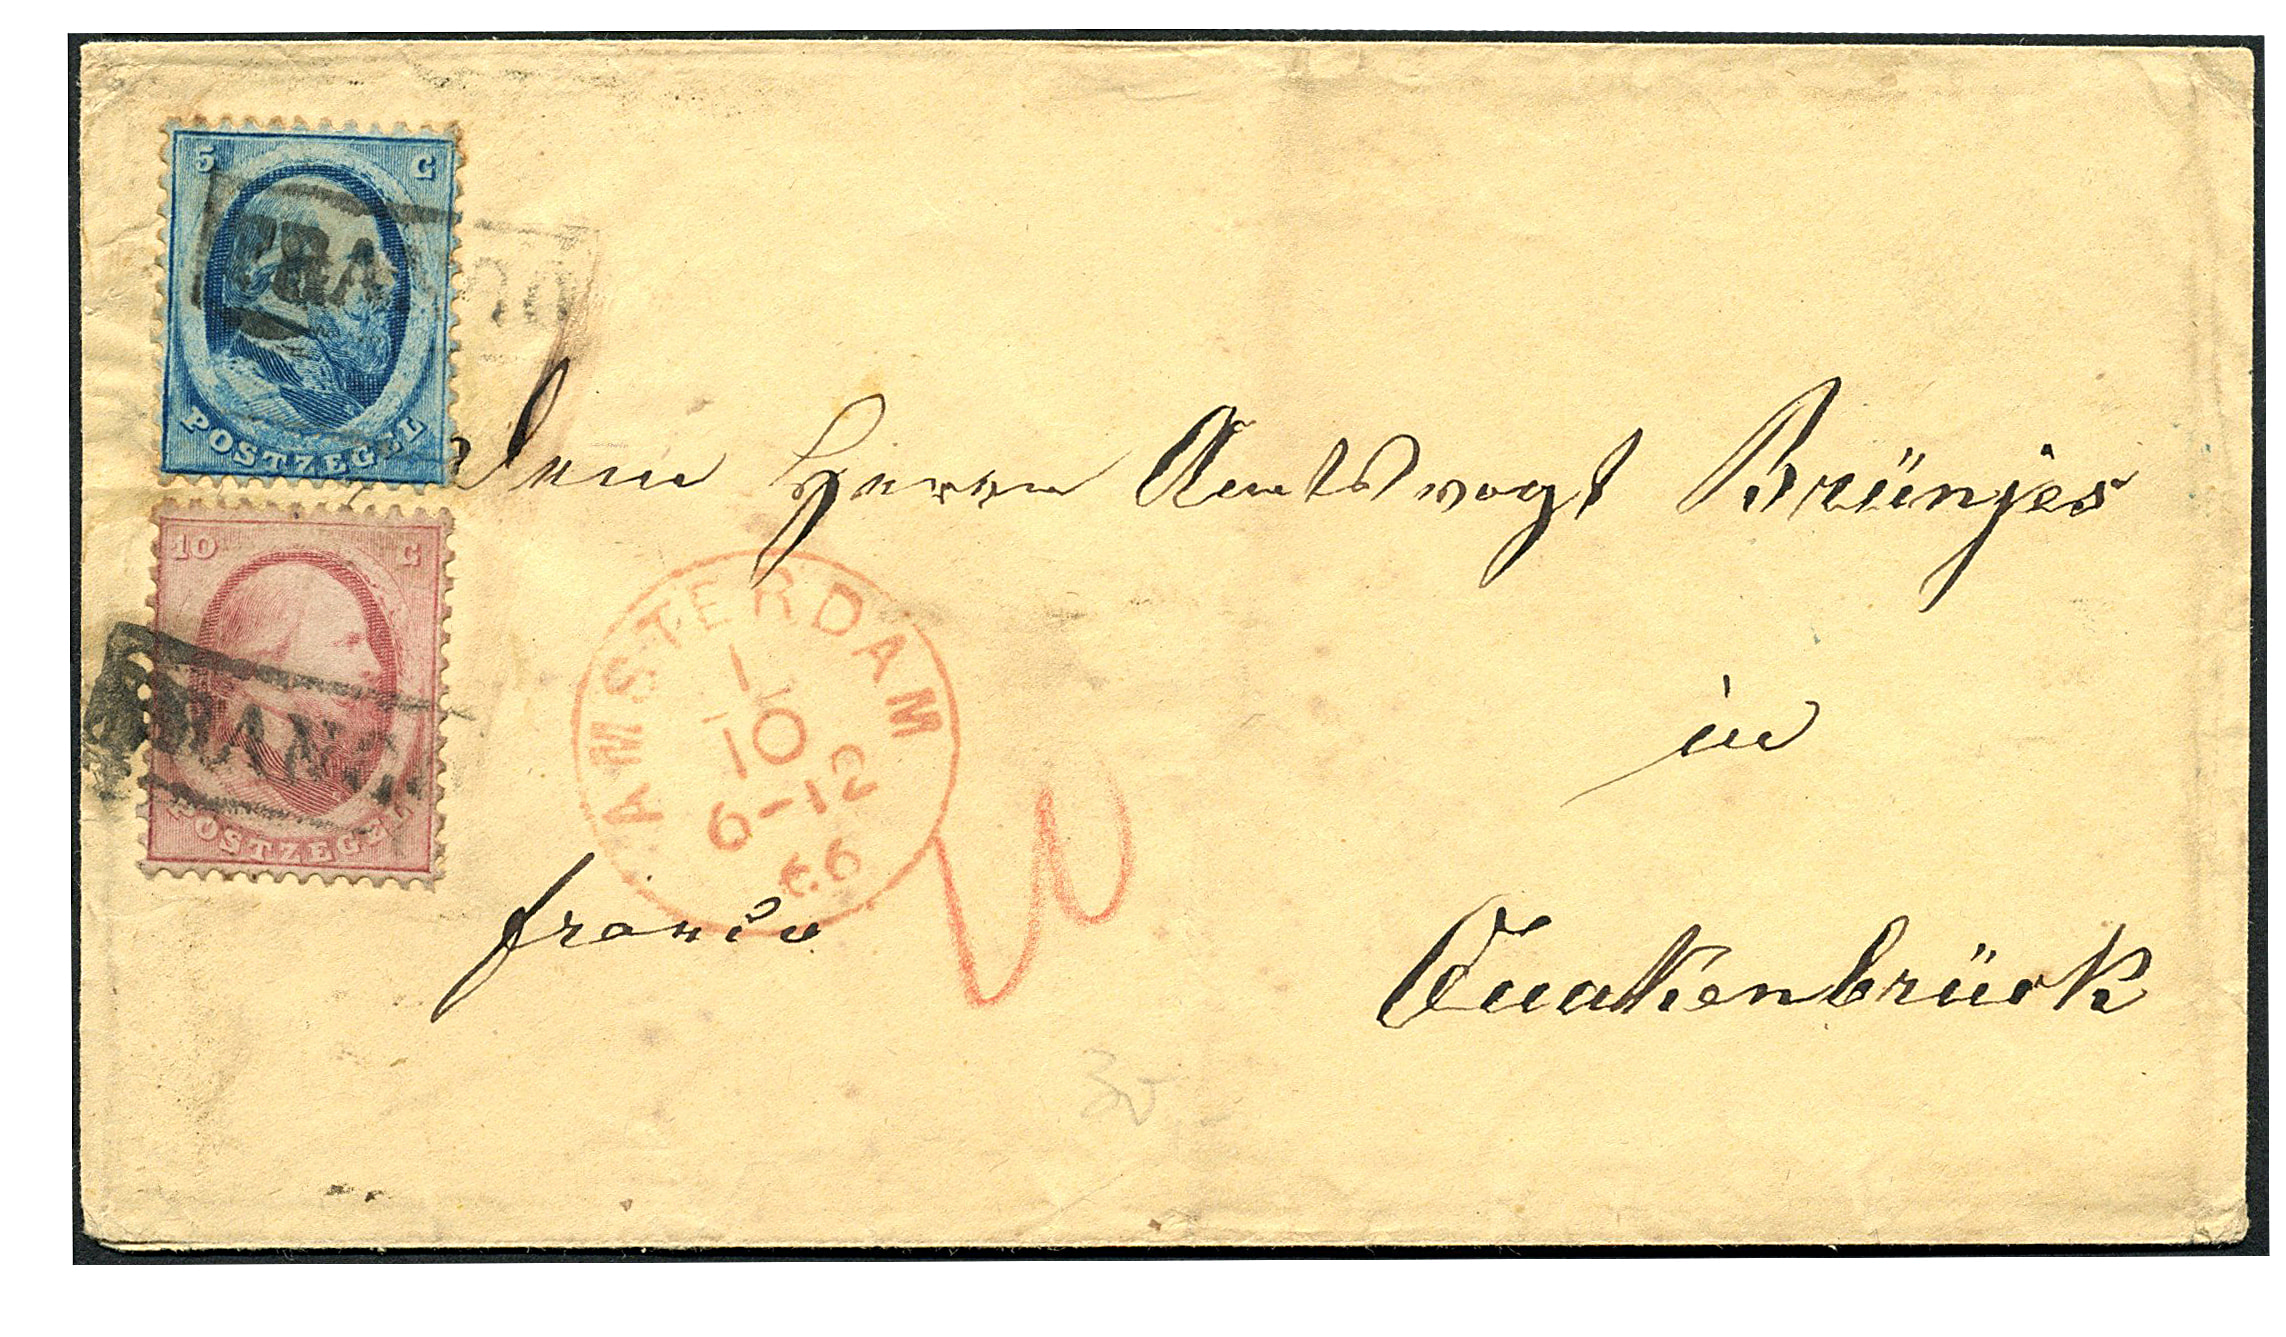 5 C
FRANCO
POSTZEGEL
10 C
FRANCO
POSTZEGEL
Dem Herrn Amtsvogt Brünjes
in
Quakenbrück
franco
AMSTERDAM
10
10
6-12
66